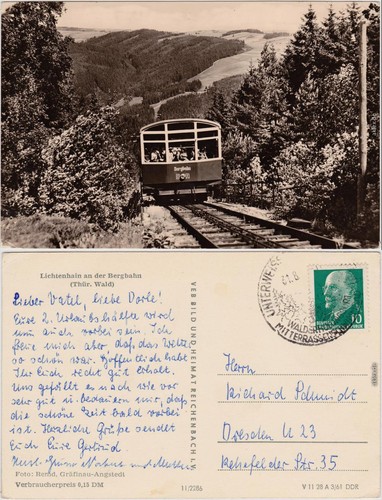 Bergbahn
Lichtenhain an der Bergbahn
(Thür. Wald)
Lieber Vatel, liebe Dorle!
Eure 2. Urlaubshälfte wird
nun auch vorbei sein. Ich
freue mich aber, daß das Wetter
so schön war. Hoffentlich habt
Ihr Euch recht gut erholt.
Uns gefällt es nach wie vor
sehr gut u. bedauern nur, daß
die schöne Zeit bald vorbei
ist. Herzliche Grüße sendet
Euch Eure Gertrud.
Foto: Bernd, Gräfinau-Angstedt
Verbraucherpreis 0,15 DM
11/2286
VEB BILD UND HEIMAT REICHENBACH i. V.
UNTERWEISS
WALDS
MITTERRASS
10
Herrn
Richard Schmidt
Dresden N 23
Rehefelder Str. 35
V 11 28 A 3/61 DDR